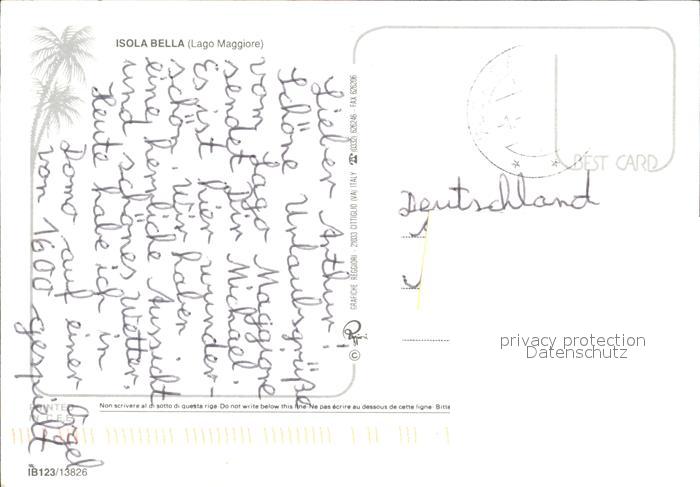 ISOLA BELLA (Lago Maggiore)
Lieber Arthur!
Schöne Urlaubsgrüße
vom Lago Maggiore
sendet Dir Michael.
Es ist hier wunder-
schön. Wir haben
eine herrliche Aussicht
und schönes Wetter.
Heute habe ich in
Domo auf einer Orgel
von 1600 gespielt
GRAFICHE REGGIORI - 21033 CITTIGLIO (VA) ITALY ☎ (0332) 626246 - FAX 626206
©
BEST CARD
Deutschland
privacy protection
Datenschutz
Non scrivere al di sotto di questa riga Do not write below this line Ne pas écrire au dessous de cette ligne Bitte
PRINTED
IN C.E.E.
IB123/13826